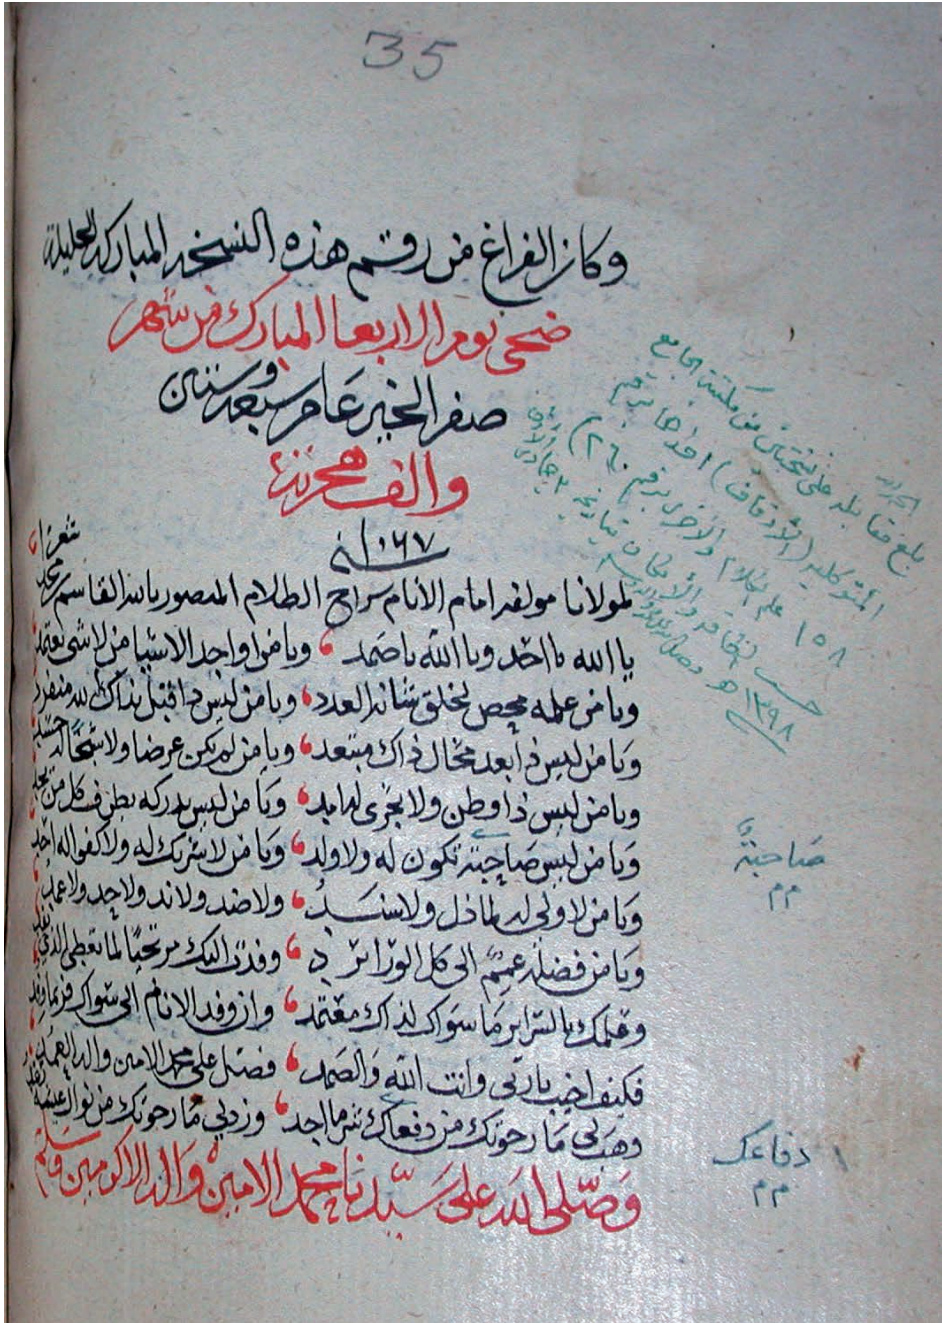 35
وكان الفراغ من رقم هذه النسخه المباركه الجليلة
ضحى يوم الاربعا المبارك من شهر
صفر الخير عام سبعه وستين
والف هجريه
سنه ١٠٦٧
شعرا
لمولانا مولف امام الأنام سراج الظلام المنصور بالله القاسم محمد
يا الله يا احد ويا الله يا صمد ويا من اوجد الاشيا من لا شي يعتمد
ويا من علمه محص لخلق شانه العدد ويا من ليس ذا قبل بذاك لله منفرد
ويا من ليس ذا بعد محال ذاك مبتعد ويا من لم يكن عرضا ولا شبحا له جسد
ويا من ليس ذا وطن ولا يجزى له امد ويا من ليس يدركه بطرف كل من يجد
ويا من ليس صاحبة تكون له ولا ولد ويا من لا شريك له ولا كفوا له احد
ويا من لا ولي له لما ذل ولا سند ولا ضد ولا ند ولا جد ولا عمد
ويا من فضله عميم الى كل الورا يرد وفدت اليك مرتجيا لما تعطي الذي يفد
وعلمك بالسراير ما سواك لذاك معتمد وان وفد الانام الى سواك فربما وفد
فكيف اخيب يا ربي وانت الله والصمد فصل على محمد الامين واله العمد
وهب لي ما رجوتك من دفعاك ثم ما اجد وزدني ما رجوتك من نوال
وصلى الله على سيدنا محمد الامين واله الاكرمين وسلم
الحمد لله
بلغ مقابله على نسختين من مكتبة الجامع
المتوكليه (الأوقاف) احداهما برقم
١٥٨ علم الكلام والأخرى برقم ٢٦٠
حسب الطاقه والأمكان بتاريخه ٢ جمادى الأولى
١٣٩٨هـ
صاحبة
م م
دفاعك
م م